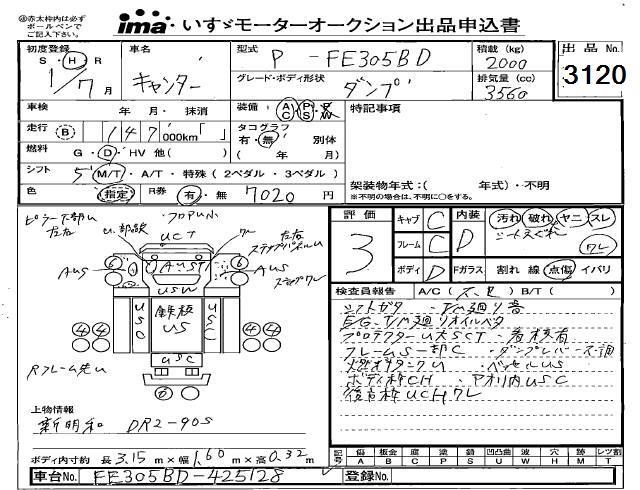 ㊟赤太枠内は必ず
ボールペンで
ご記入下さい。
ima いすゞモーターオークション出品申込書
初度登録 S・H・R 1/7月
車名 キャンター
型式 P-FE305BD
積載(kg) 2000
出品No. 3120
グレード・ボディ形状 ダンプ
排気量(cc) 3560
車検 年 月・抹消
装備 AC PS PW
特記事項
走行 B 147,000km
タコグラフ 有・無 別体
( 年 月)
燃料 G・D・HV 他( )
シフト 5 M/T・A/T・特殊(2ペダル・3ペダル)
架装物年式:( 年式)・不明
※不明の場合は、不明に○をする。
色 指定 R券 有・無 7020円
ピラー下部U
左右
U.部欠
フロアUS
UCT
ワレ
左右
ステップパネルU
AUS
6
6
AUST
6
6
AUS
ステップワレ
USW
USC
鉄板
US
USC
4 4
4 4
USC
Rフレーム先U
評価 3
キャブ C
フレーム C
ボディ D
内装 D
汚れ 破れ ヤニ スレ
シートスグレ ワレ
Fガラス 割れ 線 点傷 イバリ
検査員報告 A/C( 不良 ) B/T( )
シフトガタ ・T/M廻り音
E/G・T/M廻りオイルベタ
プロテクターU大SCT ・着板有
フレームUS一部C ・ダンプレバース調
燃料タンクU ・ベッセルUS
ボディ枠CH ・アオリ内USC
後方枠UCHワレ
上物情報
新明和 DR2-90S
ボディ内寸約 長3.15m×幅1.60m×高0.32m
記号 傷A 板金B 腐C 塗P 錆S 凹凸曲U 波W 穴H 跡M レツ割T
車台No. FE305BD-425128
登録No.